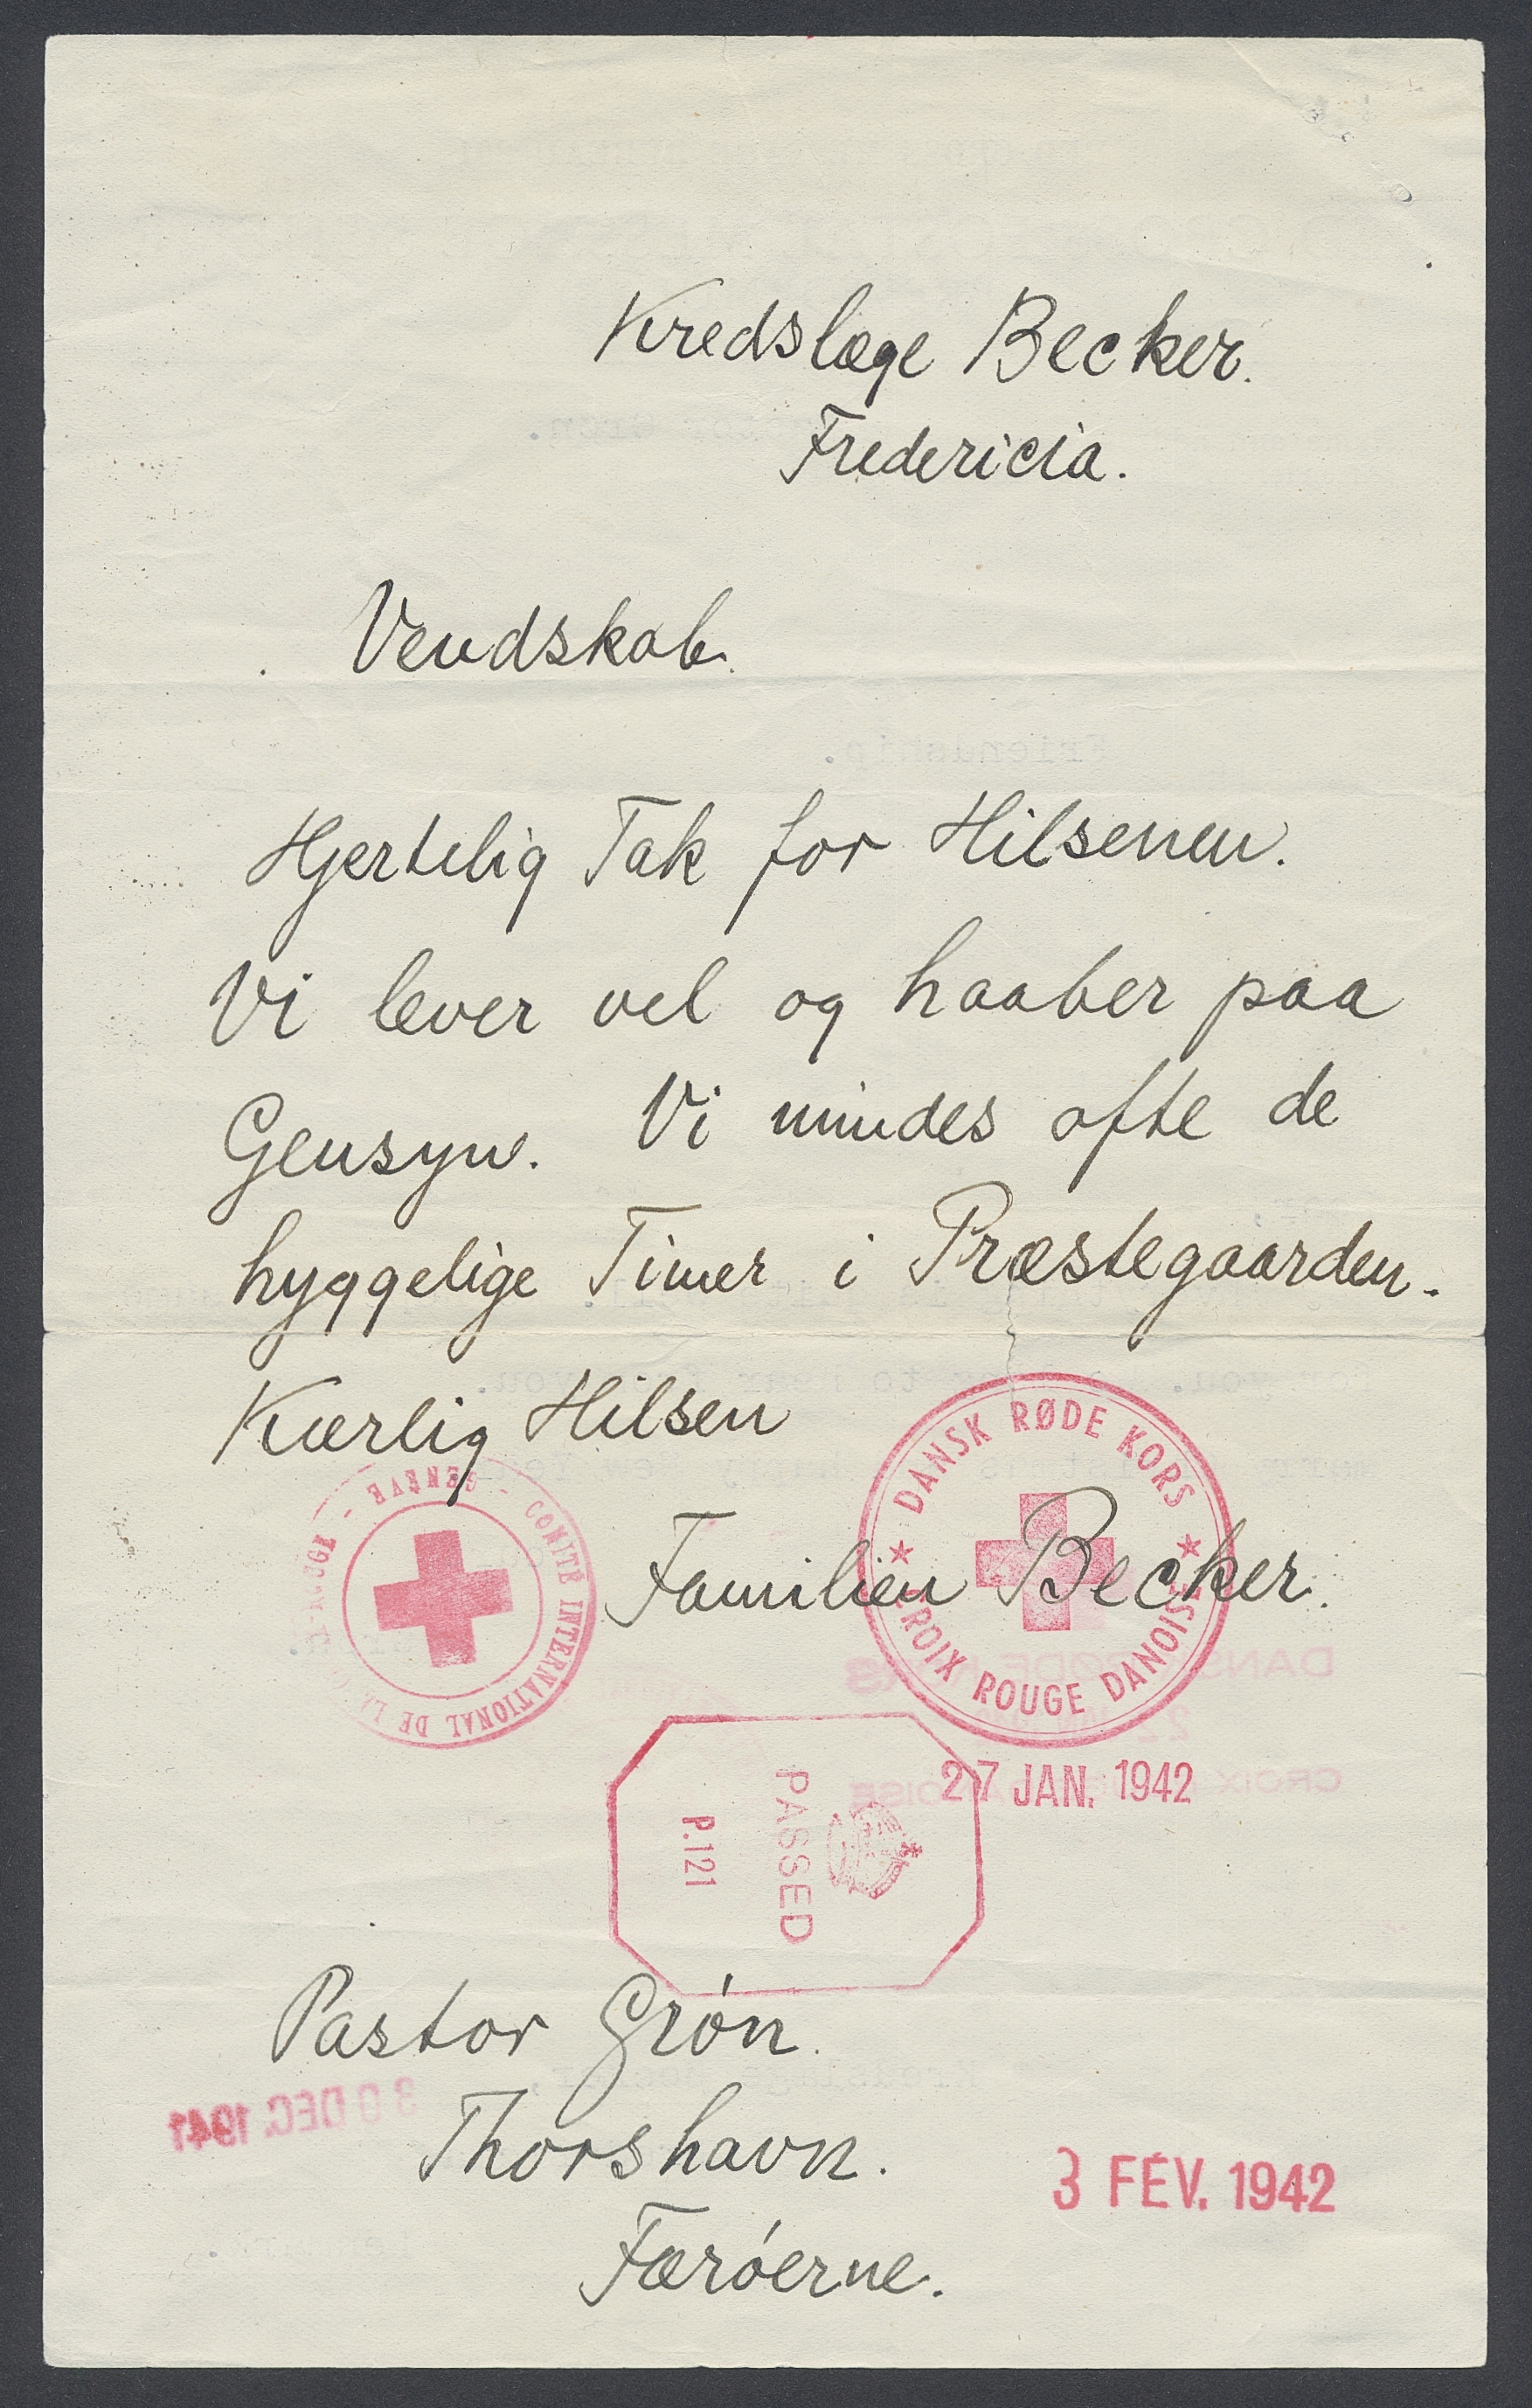 Kredslæge Becker.
Fredericia.
Vendskab.
Hjertelig Tak for Hilsenen.
Vi lever vel og haaber paa
Gensyn. Vi mindes ofte de
hyggelige Timer i Præstegaarden.
Kærlig Hilsen
Familien Becker.
DANSK RØDE KORS
CROIX ROUGE DANOISE
COMITÉ INTERNATIONAL DE LA
ROUGE - GENÈVE -
27 JAN. 1942
PASSED
P.121
Pastor Grón.
Thorshavn.
Færóerne.
30 DEC. 1941
3 FÉV. 1942
Friendship.